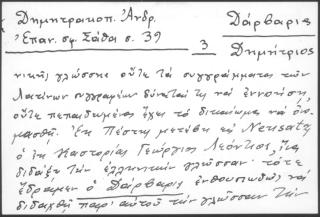 Δημητρακοπ. Ἀνδρ.
Δάρβαρις
Ἐπαν. σφ. Σάθα σ. 39
3
Δημήτριος
νικῆς γλώσσης οὔτε τὰ συγγράμματα τῶν
Λατίνων συγγραφέων δύναταί τις νὰ ἐννοήσῃ,
οὔτε πεπαιδευμένος ἔχει τὸ δικαίωμα νὰ ὀνο-
μασθῇ. Ἐκ Πέστης μετέβη εἰς Νεusatz
ὁ ἐκ Καστορίας Γεώργιος Λεόντιος, ἵνα
διδάξῃ τὴν ἑλληνικὴν γλῶσσαν· τότε
ἔδραμεν ὁ Δάρβαρις ἐνθουσιωδῶς νὰ
διδαχθῇ παρ' αὐτοῦ τὴν γλῶσσαν τῶν